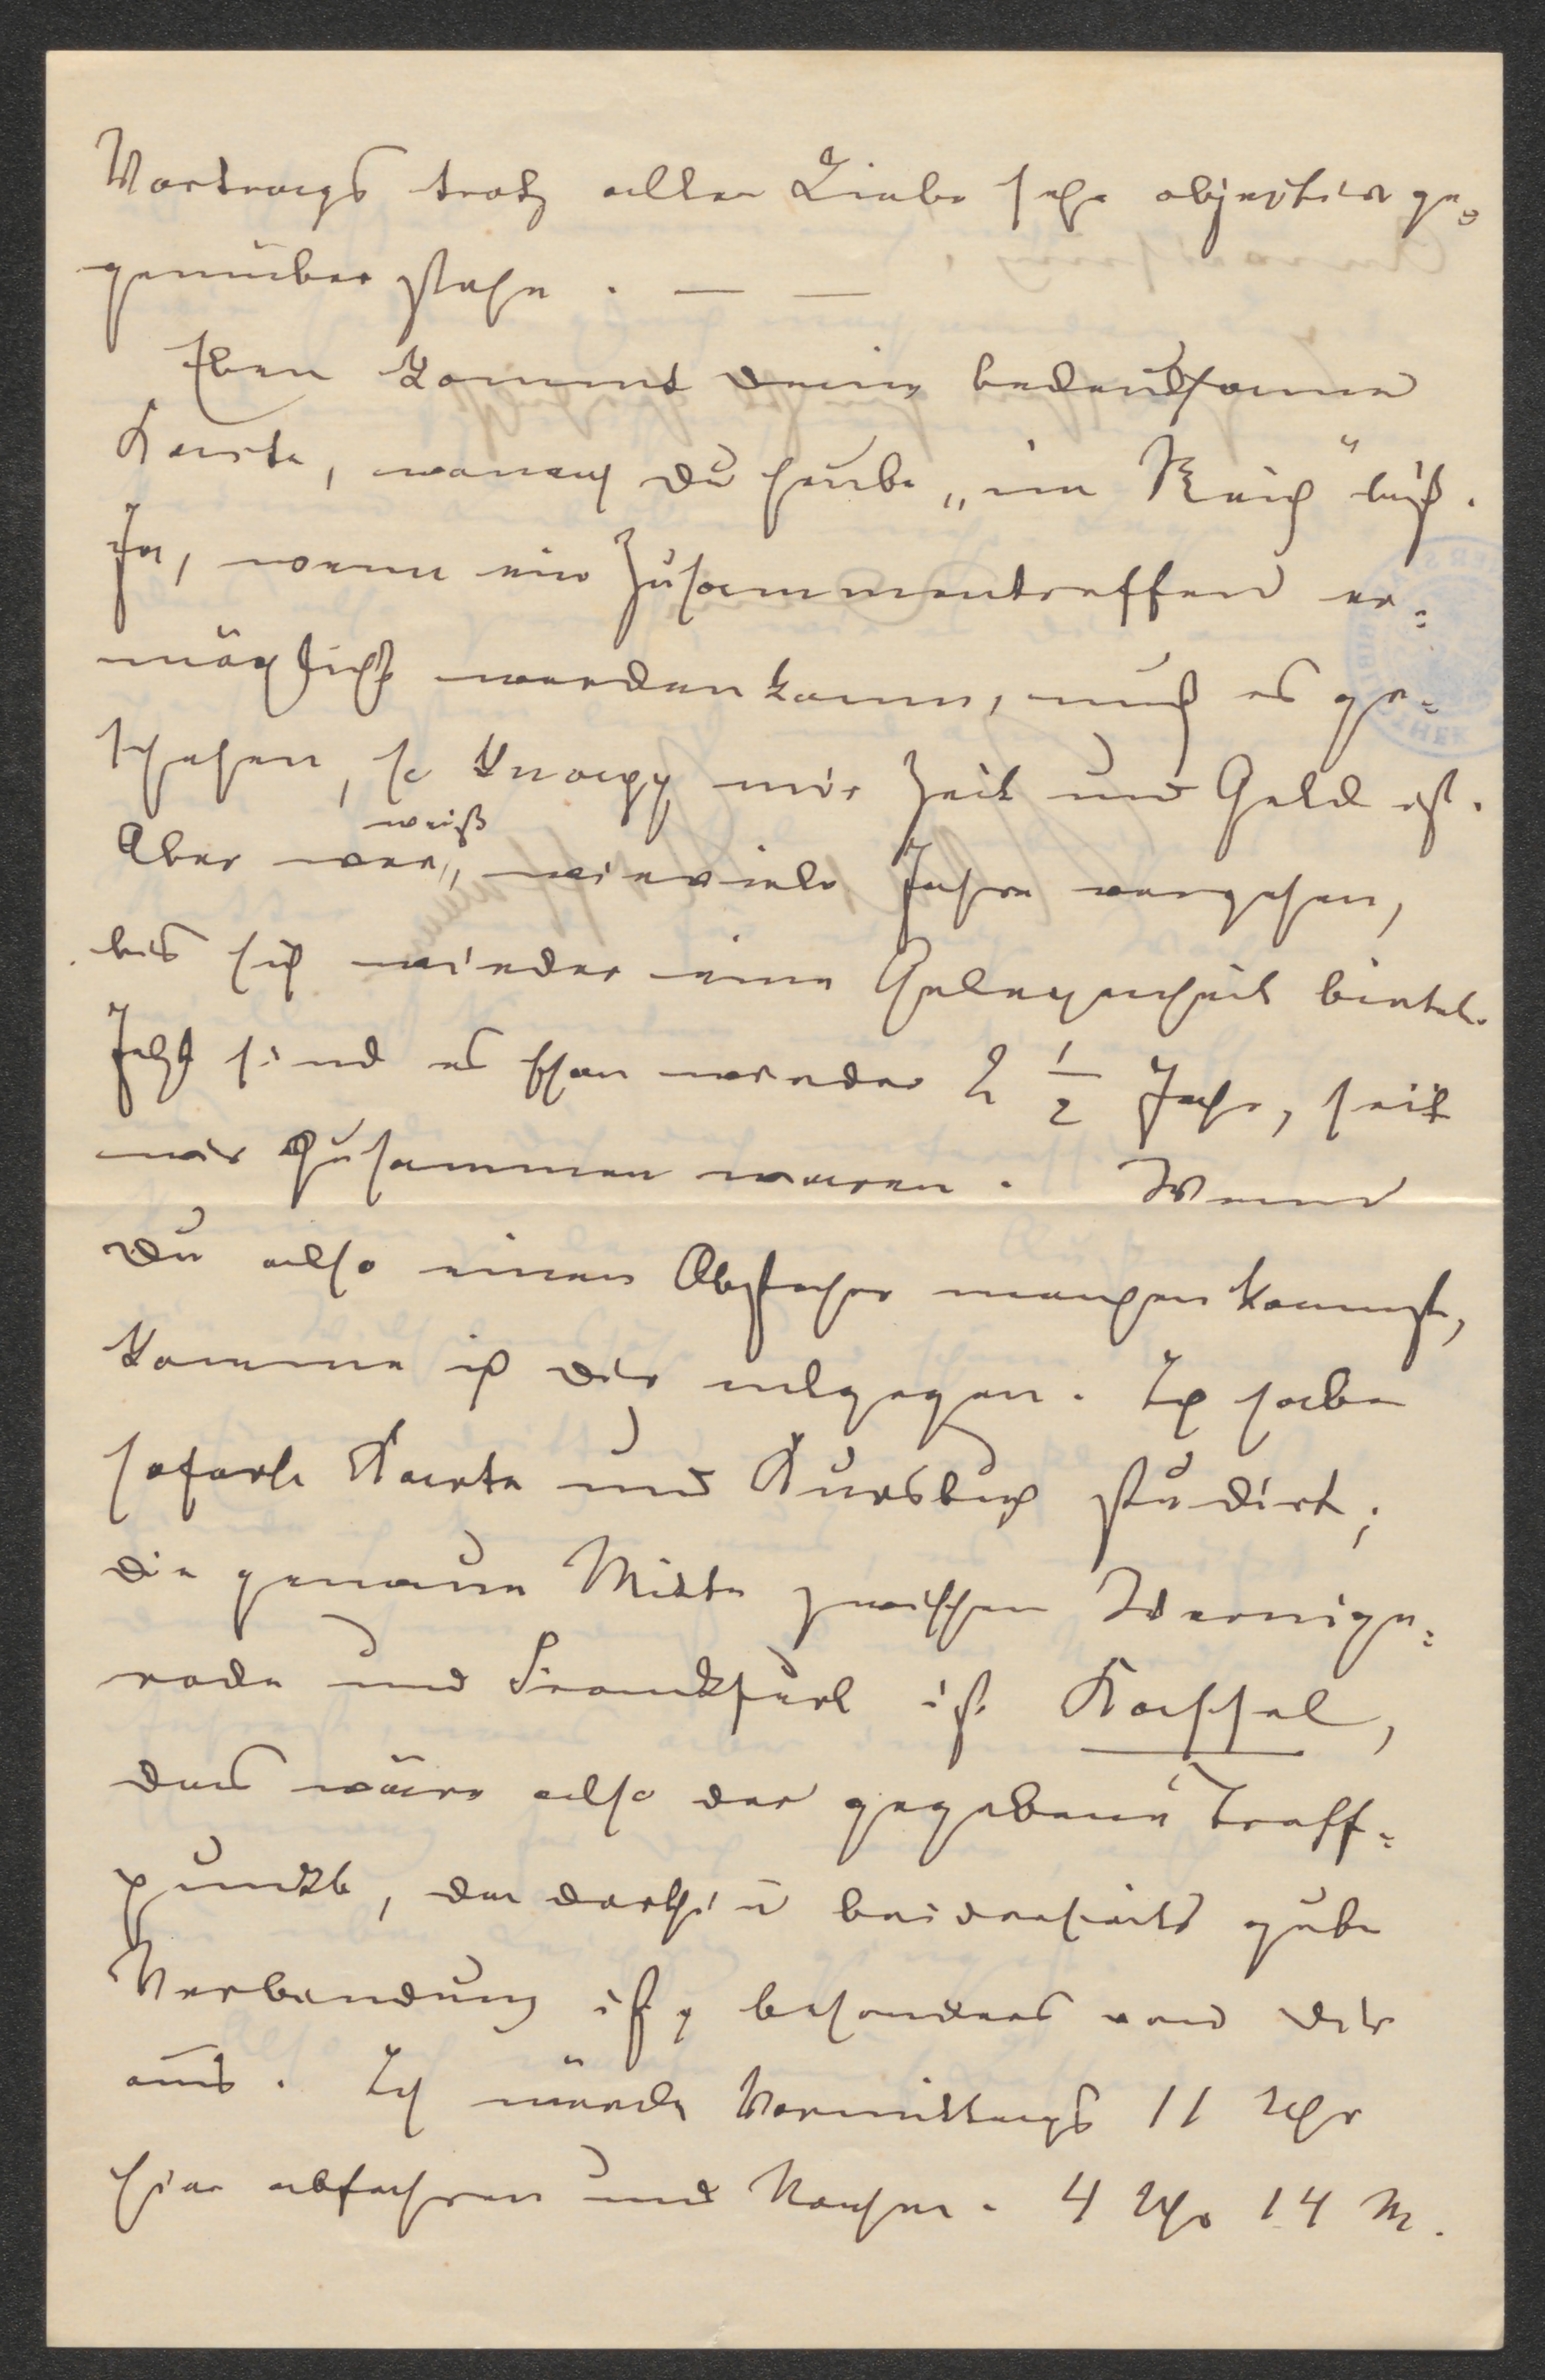 Vortrags trotz aller Liebe sehr objectiv ge=
genüber stehe. — —
Eben kommt deine bedeutsame
Karte, wonach du heute „im Reich" bist.
Ja, wenn ein Zusammentreffen er=
möglicht werden kann, muß es ge=
schehen, so knapp mir Zeit und Geld ist.
Aber wer weiß, wieviele Jahre vergehen,
bis sich wieder eine Gelegenheit bietet.
Jetzt sind es schon wieder 2 1/2 Jahr, seit
wir zusammen waren. Wenn
du also einen Abstecher machen kannst,
komme ich dir entgegen. Ich habe
sofort Karte und Kursbuch studirt;
die genaue Mitte zwischen Wernige=
rode und Frankfurt ist Kassel,
das wäre also der gegebene Treff=
punkt, da dorthin beiderseits gute
Verbindung ist, besonders von dir
aus. Ich würde Vormittags 11 Uhr
hier abfahren und Nachm. 4 Uhr 14 M.